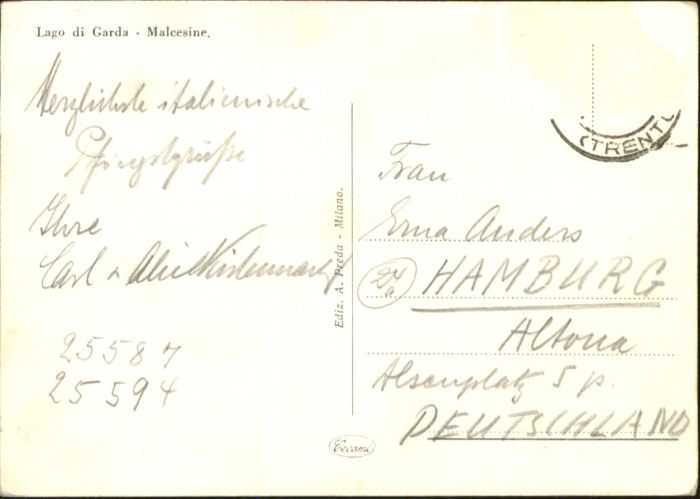 Lago di Garda - Malcesine.
Herzlichste italienische
Pfingstgrüße
Ihre
Carl
25587
25594
Ediz. A. Preda - Milano.
Cecami
(TRENTO
Frau
Erna Anders
24a HAMBURG
Altona
Alsenplatz 5 p.
DEUTSCHLAND